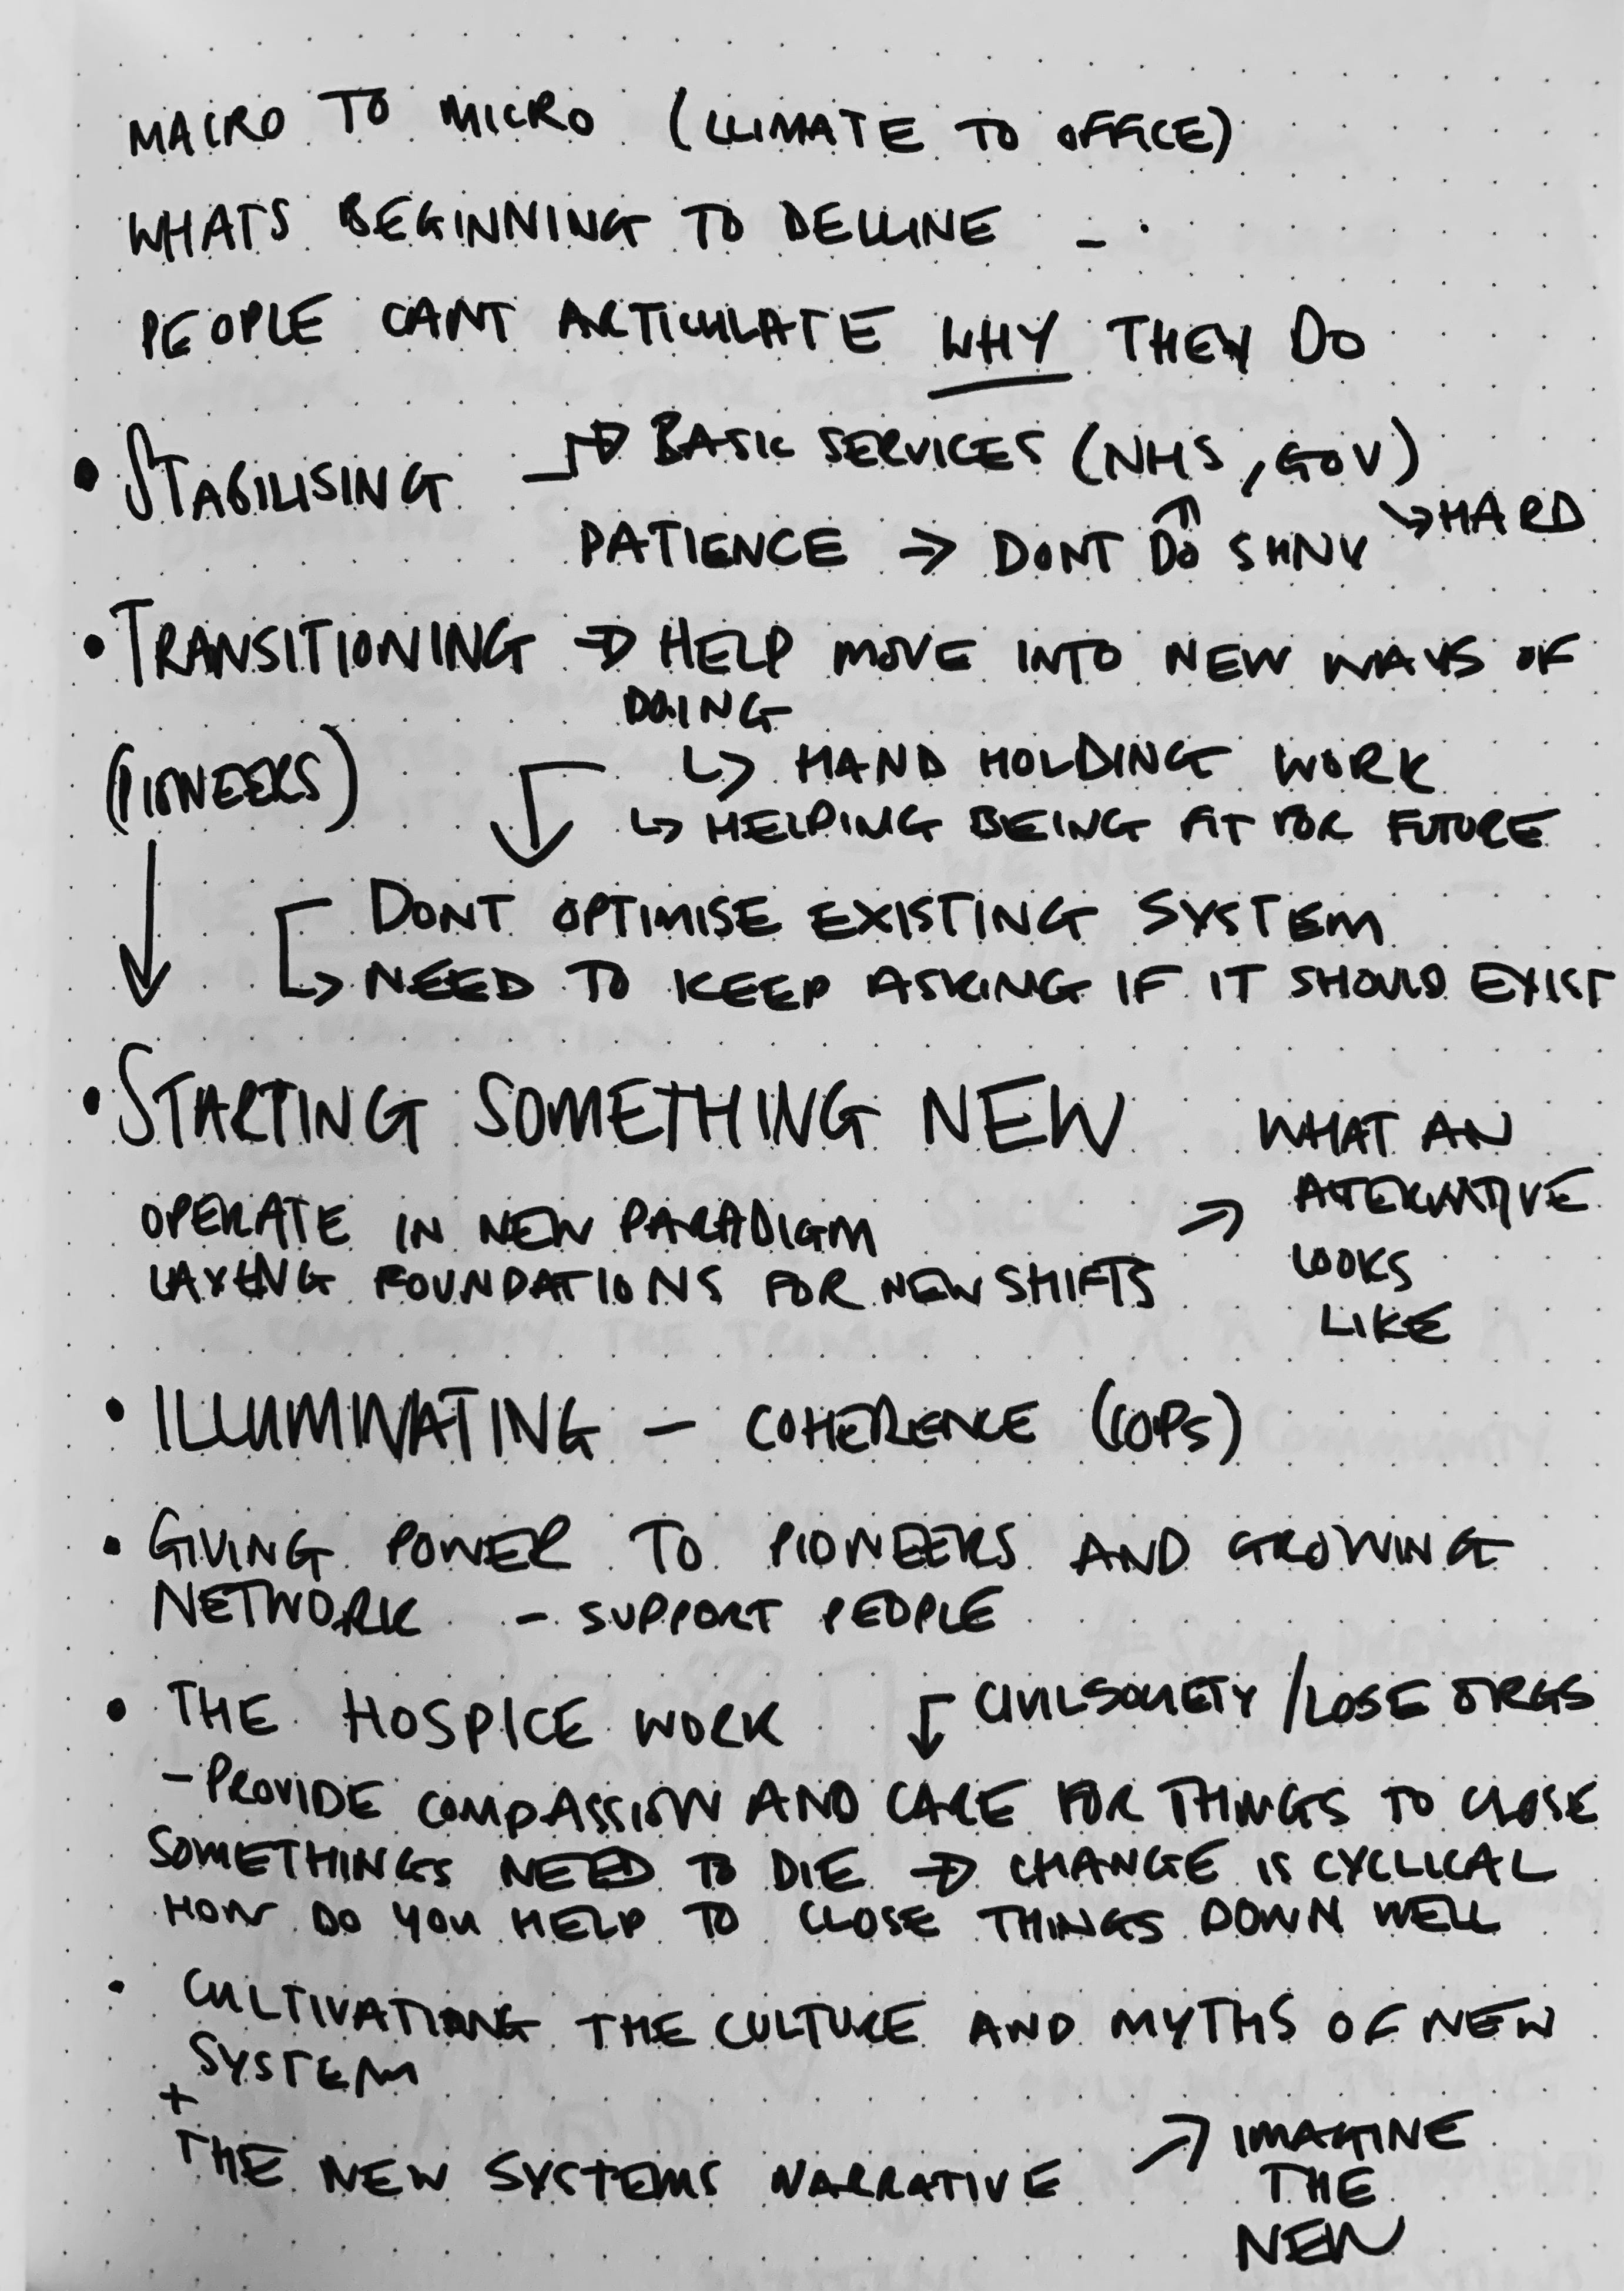 MACRO TO MICRO (CLIMATE TO OFFICE)
WHATS BEGINNING TO DECLINE - .
PEOPLE CANT ARTICULATE WHY THEY DO
• STABILISING → BASIC SERVICES (NHS, GOV)
↳ HARD
PATIENCE → DONT DO SHNY
• TRANSITIONING → HELP MOVE INTO NEW WAYS OF
DOING
(PIONEERS) ↳ HAND HOLDING WORK
↳ HELPING BEING FIT FOR FUTURE
DONT OPTIMISE EXISTING SYSTEM
↳ NEED TO KEEP ASKING IF IT SHOULD EXIST
• STARTING SOMETHING NEW
OPERATE IN NEW PARADIGM
LAYING FOUNDATIONS FOR NEW SHIFTS
→ WHAT AN
ATERNATIVE
LOOKS
LIKE
• ILLUMINATING - COHERENCE (COPS)
• GIVING POWER TO PIONEERS AND GROWING
NETWORK - SUPPORT PEOPLE
• THE HOSPICE WORK ↓ CIVIL SOCIETY / LOSE ORGS
- PROVIDE COMPASSION AND CARE FOR THINGS TO CLOSE
SOMETHINGS NEED TO DIE → CHANGE IS CYCLICAL
HOW DO YOU HELP TO CLOSE THINGS DOWN WELL
• CULTIVATING THE CULTURE AND MYTHS OF NEW
SYSTEM
+
THE NEW SYSTEMS NARRATIVE → IMAGINE
THE
NEW